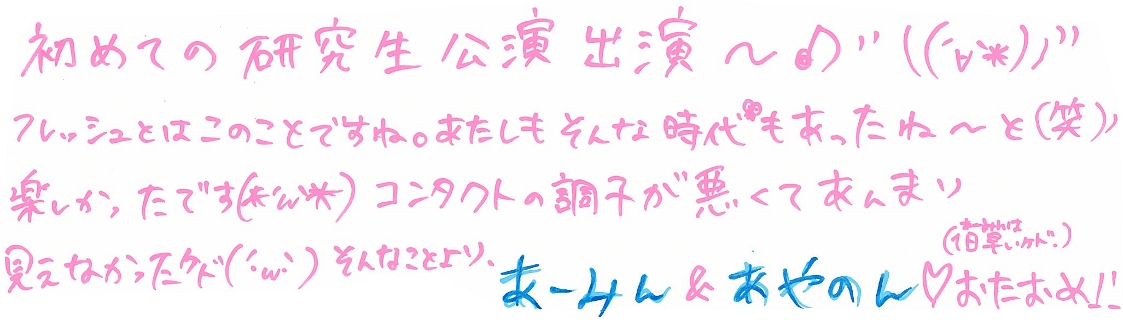 初めての研究生公演出演〜♪"((´∀`*))"
フレッシュとはこのことですね。あたしもそんな時代もあったね〜と(笑)
楽しかったです(*´ω`*) コンタクトの調子が悪くてあんまり
見えなかったケド(´・ω・`) そんなことより、
(あーみんは1日早いケド!)
あーみん&あやのん♡おたおめ!!